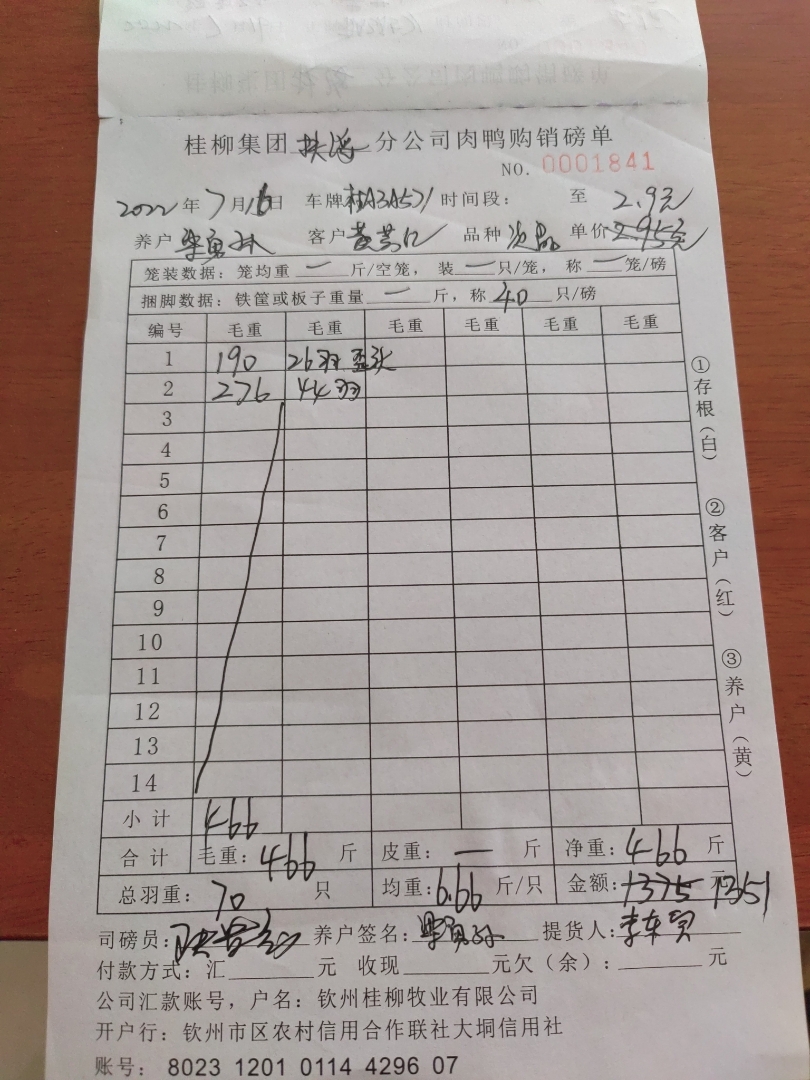 桂柳集团 分公司肉鸭购销磅单
NO. 0001841
2022年7月16日 车牌桂A3A571 时间段： 至 2.9元
养户 客户 品种 次品 单价2.95元
笼装数据：笼均重 — 斤/空笼，装 — 只/笼，称 — 笼/磅
捆脚数据：铁筐或板子重量 — 斤，称 40 只/磅
编号 毛重 毛重 毛重 毛重 毛重 毛重
1 190 26羽 歪头
2 276 44羽
3
4
5
6
7
8
9
10
11
12
13
14
小计 466
合计 毛重：466 斤 皮重：— 斤 净重：466 斤
总羽重：70 只 均重：6.66 斤/只 金额：1375 元 1351
司磅员： 养户签名： 提货人：
付款方式：汇 元 收现 元欠（余）： 元
公司汇款账号，户名：钦州桂柳牧业有限公司
开户行：钦州市区农村信用合作联社大垌信用社
账号：8023 1201 0114 4296 07
①存根（白）
②客户（红）
③养户（黄）